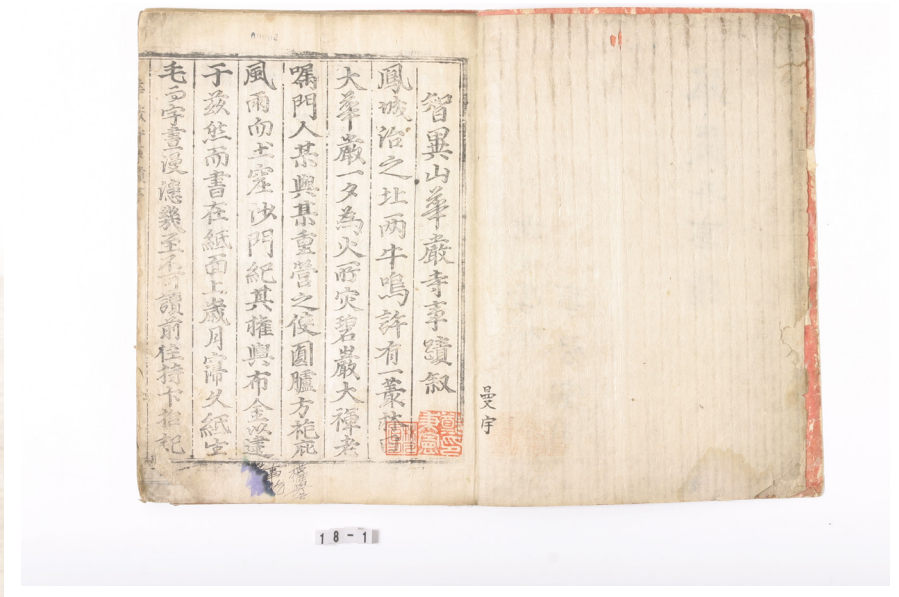 曼宇
智異山華嚴寺事蹟叙
鳳城治之北两牛鳴許有一叢林曰
大華嚴一夕為火所灾碧巖大禪老
嘱門人某與某重營之俊圓臚方袍庇
風雨而土室沙門紀其權輿布金以逮
于茲然而書在紙面上歲月寖久紙生
毛而字畫漫漶幾至不可讀前住持卞
18-1